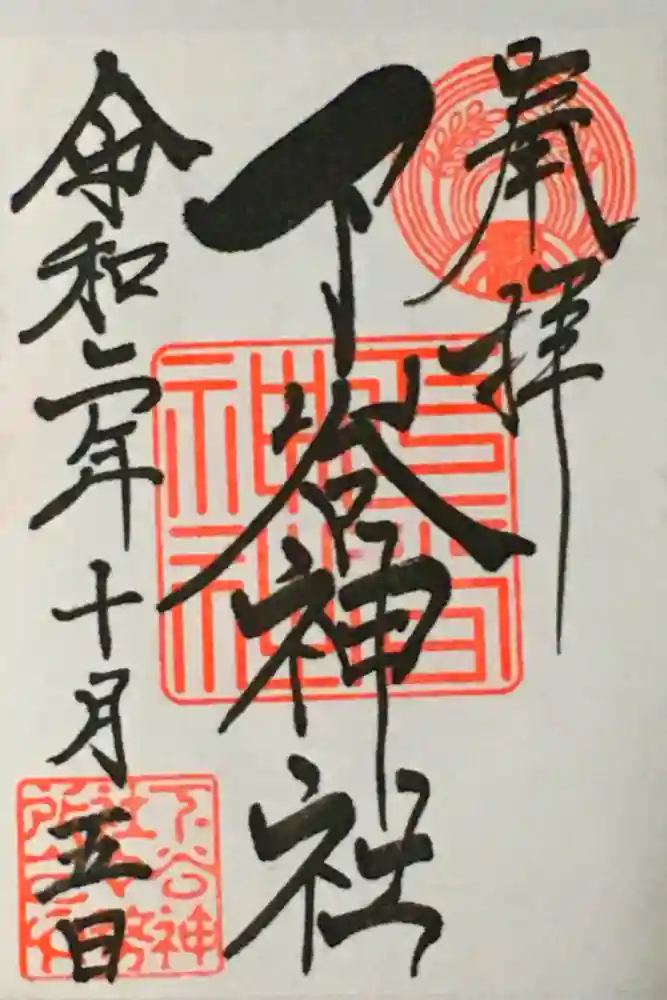 奉拝
下谷神社
令和二年十月五日
下谷神社
下谷神社社務所之印